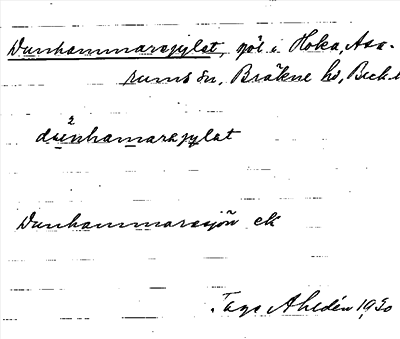 Dunhammaragylet, göl i Hoka, Asa-
rums sn, Bräkne hd, Blek.
du²nhamaragylat
Dunhammaresjön ek
Tage Ahldén 1930